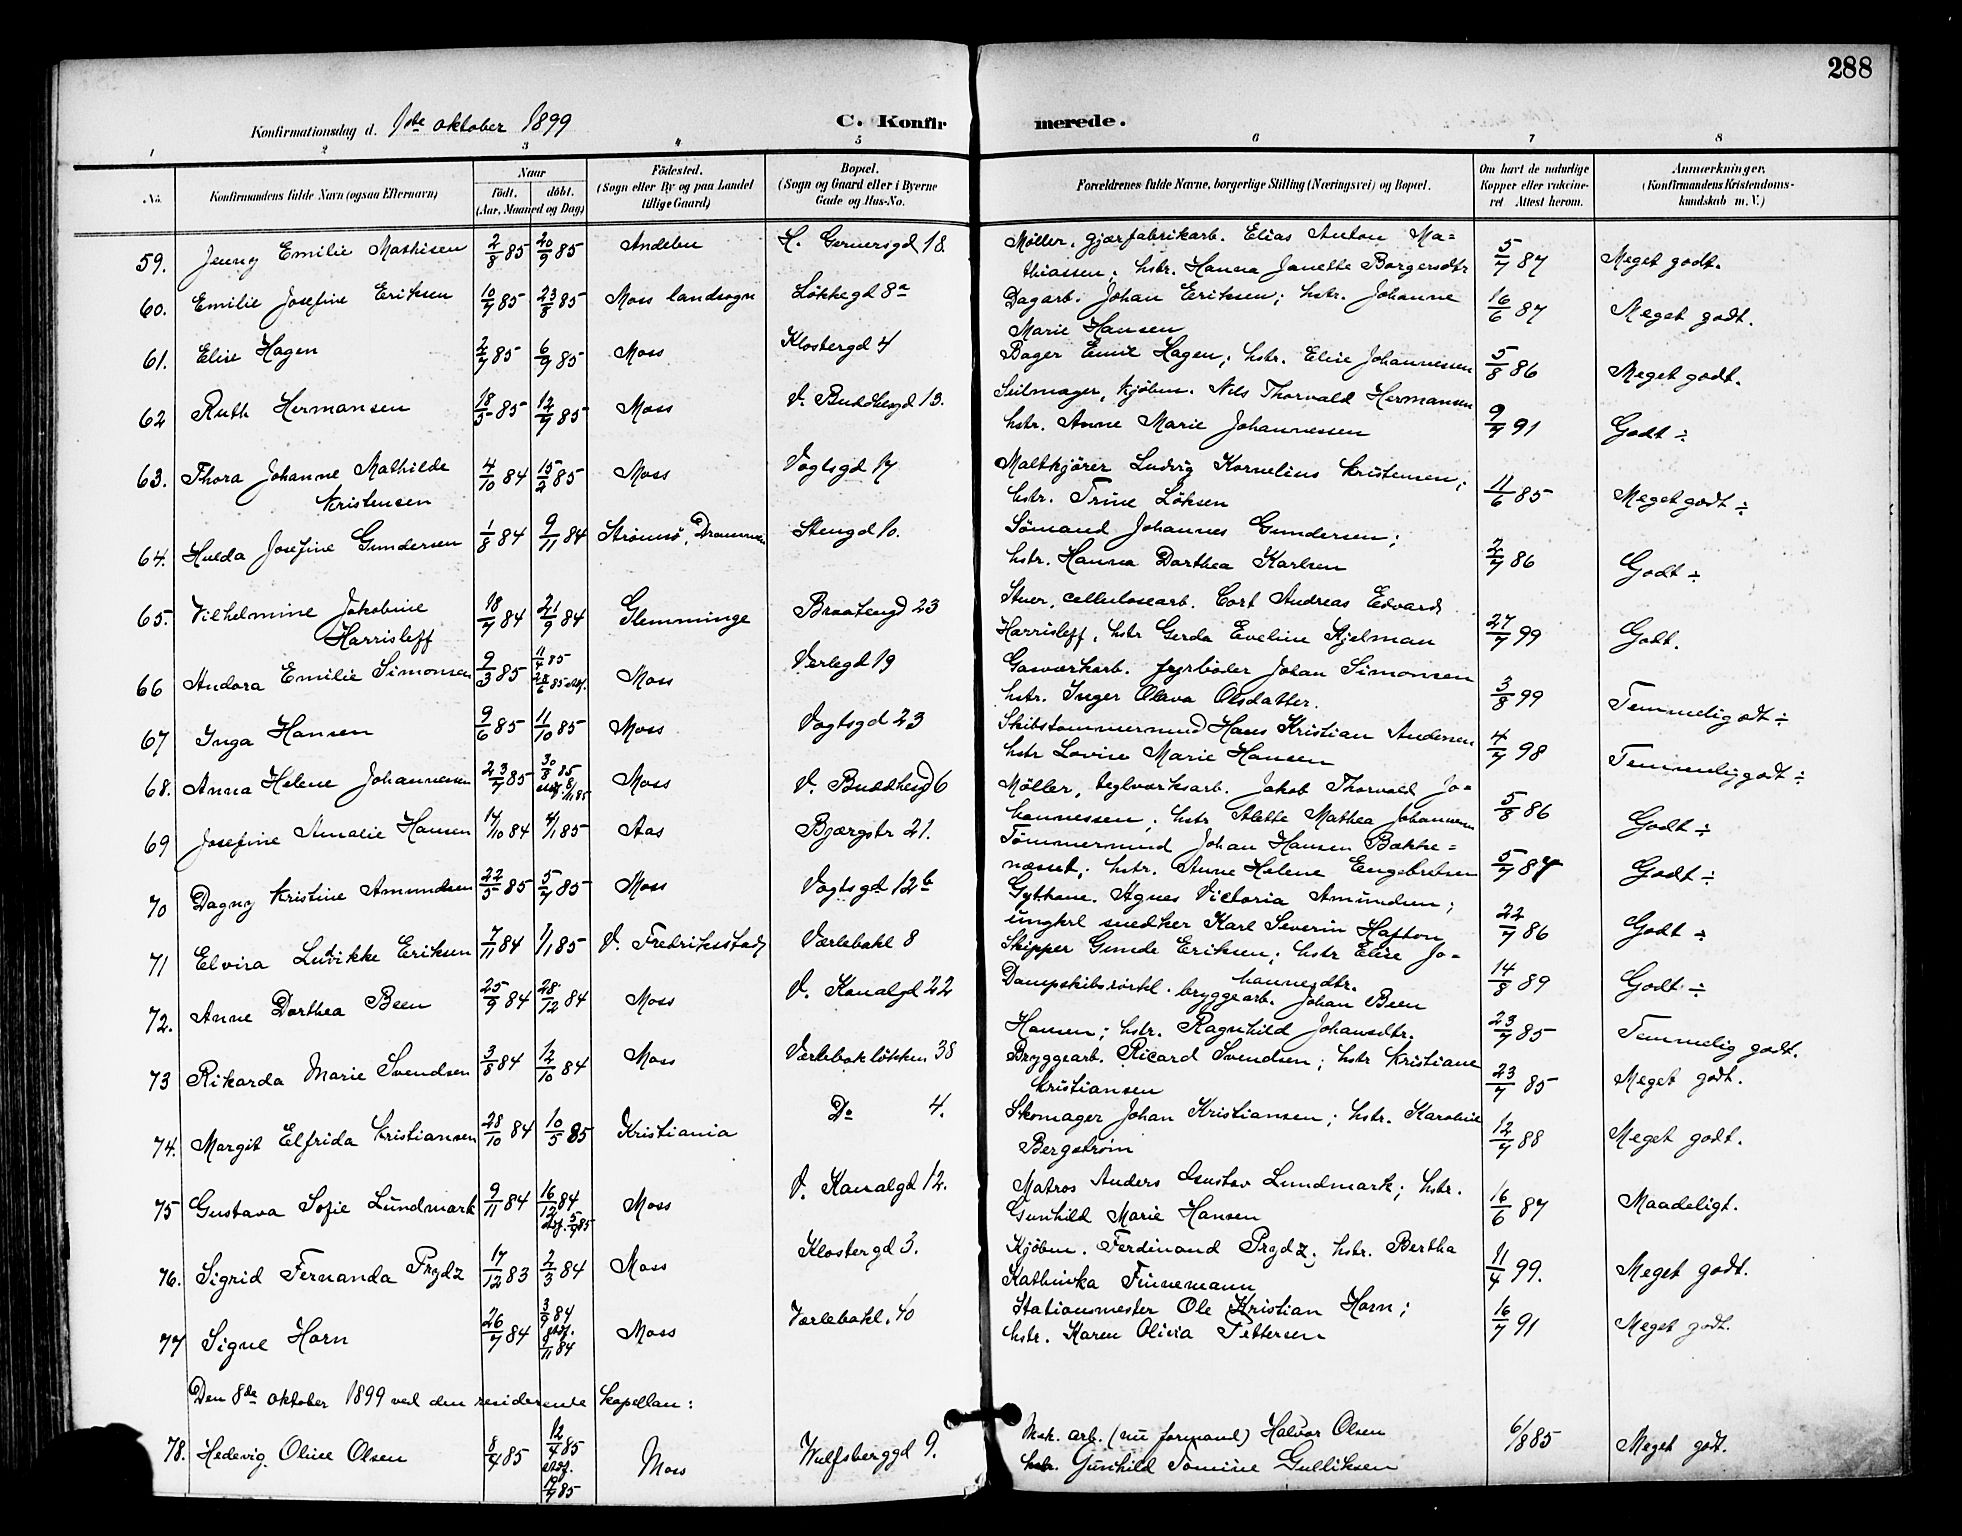 288
Konfirmationsdag d. 1ste oktober 1899
C. Konfirmerede.
1 2 3 4 5 6 7 8
No.
Konfirmandens fulde Navn (ogsaa Efternavn)
Naar
født. døbt.
(Aar, Maaned og Dag)
Födested.
(Sogn eller By og paa Landet tillige Gaard)
Bopæl.
(Sogn og Gaard eller i Byerne Gade og Hus-No.
Forældrenes fulde Navne, borgerlige Stilling (Næringsvei) og Bopæl.
Om havt de naturlige Kopper eller vaccineret Attest herom.
Anmærkninger.
(Konfirmandens Kristendomskundskab m. V.)
59. Jenny Emilie Mathisen 2/8 85 20/9 85 Andebu H. Gernersgd 18. Møller, gjærfabrikarb. Elias Anton Ma=
thiassen; hstr. Hanna Janette Borgersdtr 5/7 87 Meget godt.
60. Emilie Josefine Eriksen 10/7 85 23/8 85 Moss landsogn Løkkegd 8a Dagarb. Johan Eriksen; hstr. Johanne
Marie Hansen 16/6 87 Meget godt.
61. Elise Hagen 2/7 85 6/9 85 Moss Klostergd 4 Bager Emil Hagen; hstr. Elise Johannessen 5/8 86 Meget godt.
62 Ruth Hermansen 18/5 85 12/7 85 Moss V. Buddhesgd 13. Seilmager, kjøbm. Nils Thorvald Hermansen
hstr. Anne Marie Johannessen 9/7 91 Godt ÷
63. Thora Johanne Mathilde
Kristensen 4/10 84 15/2 85 Moss Vogtsgd 17 Maltkjører Ludvig Kornelius Kristensen;
hstr. Trine Løksen 11/6 85 Meget godt ÷
64. Hulda Josefine Gundersen 1/8 84 9/11 84 Strømsø, Drammen Stengd 10. Sömand Johannes Gundersen;
hstr. Hanna Dorthea Karlsen 2/7 86 Godt ÷
65. Vilhelmine Jakobine
Harrisleff 18/7 84 21/9 84 Glemminge Braatengd 23 Stuer, cellulosearb. Cort Andreas Edvard
Harrisleff, hstr Gerda Eveline Hjelman 27/7 99 Godt.
66 Andora Emilie Simonsen 9/3 85 11/4 85 28/6 85 stdf. Moss Værlegd 19 Gasværksarb. fyrbøder Johan Simonsen
hstr. Inger Olava Olsdatter. 3/8 99 Temmelig godt ÷
67 Inga Hansen 9/6 85 11/10 85 Moss Vogtsgd 23 Skibstømmermand Hans Kristian Andersen
hstr Lovise Marie Hansen 4/7 98 Temmelig godt ÷
68. Anna Helene Johannessen 23/7 85 30/8 85 stdf. 8/11 85 Moss V. Buddhesgd 6 Møller, teglværksarb. Jakob Thorvald Jo=
hannessen; hstr Alette Mathea Johannesen 5/8 86 Godt ÷
69 Josefine Amalie Hansen 17/10 84 4/1 85 Aas Bjergstr 21. Tømmermand Johan Hansen Bække=
næsset; hstr. Anne Helene Engebretsen 5/7 87 Godt ÷
70 Dagny Kristine Amundsen 22/5 85 5/7 85 Moss Vogtsgd 12b Gythone. Agnes Victoria Amundsen;
ungkrl snedker Karl Severin Hafton 22/7 86 Godt ÷
71 Elvira Ludvikke Eriksen 7/11 84 1/1 85 V. Fredriksstad Værlebakl 8 Skipper Gunde Eriksen; hstr Elise Jo=
hannesdtr. 14/8 89 Godt ÷
72. Anne Dorthea Been 25/9 84 28/12 84 Moss V. Kanalgd 22 Dampskibs . bryggearb. Johan Been
Hansen; hstr. Ragnhild Johansdtr. 23/7 85 Temmelig godt.
73 Rikarda Marie Svendsen 3/8 84 12/10 84 Moss Værlebakløkken 38 Bryggearb. Ricard Svendsen; hstr Kristiane
Kristiansen 23/7 85 Meget godt.
74. Margit Elfrida Kristiansen 28/10 84 10/5 85 Kristiania Do 4. Skomager Johan Kristiansen; hstr. Karoline
Bergstrøm 12/7 88 Meget godt.
75 Gustava Sofie Lundmark 9/11 84 16/12 84 stdf. 5/7 85 Moss V. Kanalgd 12. Matros Anders Gustav Lundmark; hstr.
Gunhild Marie Hansen 16/6 87 Maadeligt.
76. Sigrid Fernanda Prydz 17/12 83 2/3 84 Moss Klostergd 3. Kjøbm. Ferdinand Prydz; hstr. Bertha
Kathinka Finnemann 11/4 99. Meget godt.
77 Signe Horn 26/7 84 3/9 84 stdf. 1/11 84 Moss Værlebakl. 40 Stationsmester Ole Kristian Horn;
hstr. Karen Olivia Pettersen 16/7 91 Meget godt.
Den 8de oktober 1899 ved den residerende kapellan:
78. Hedevig Oline Olsen 8/4 85 12/4 85 stdf. 19/7 85 Moss Wulfsberggd 9. Mek. arb. (nu formand) Halvor Olsen
hstr. Gunhild Tomine Gulliksen 6/8 85 Meget godt.